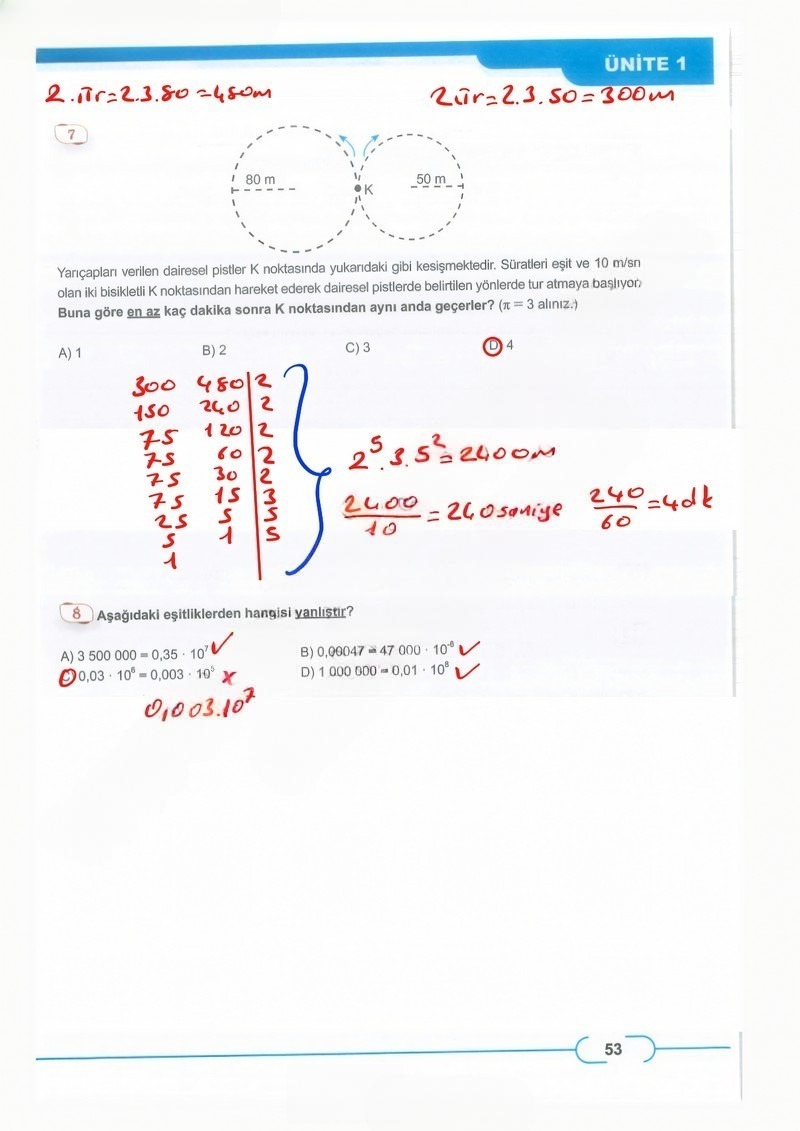 ÜNİTE 1
2.πr=2.3.80=480m
2πr=2.3.50=300m
7
80 m
50 m
K
Yarıçapları verilen dairesel pistler K noktasında yukarıdaki gibi kesişmektedir. Süratleri eşit ve 10 m/sn
olan iki bisikletli K noktasından hareket ederek dairesel pistlerde belirtilen yönlerde tur atmaya başlıyor.
Buna göre en az kaç dakika sonra K noktasından aynı anda geçerler? (π = 3 alınız.)
A) 1 B) 2 C) 3 D) 4
300 480 2
150 240 2
75 120 2
75 60 2
75 30 2
75 15 3
25 5 5
5 1 5
1
2⁵.3.5²=2400m
2400/10 = 240 saniye 240/60 =4dk
8 Aşağıdaki eşitliklerden hangisi yanlıştır?
A) 3 500 000 = 0,35 · 10⁷ ✓ B) 0,00047 = 47 000 · 10⁻⁸ ✓
C) 0,03 · 10⁶ = 0,003 · 10⁵ x D) 1 000 000 = 0,01 · 10⁸ ✓
0,003.10⁷
53